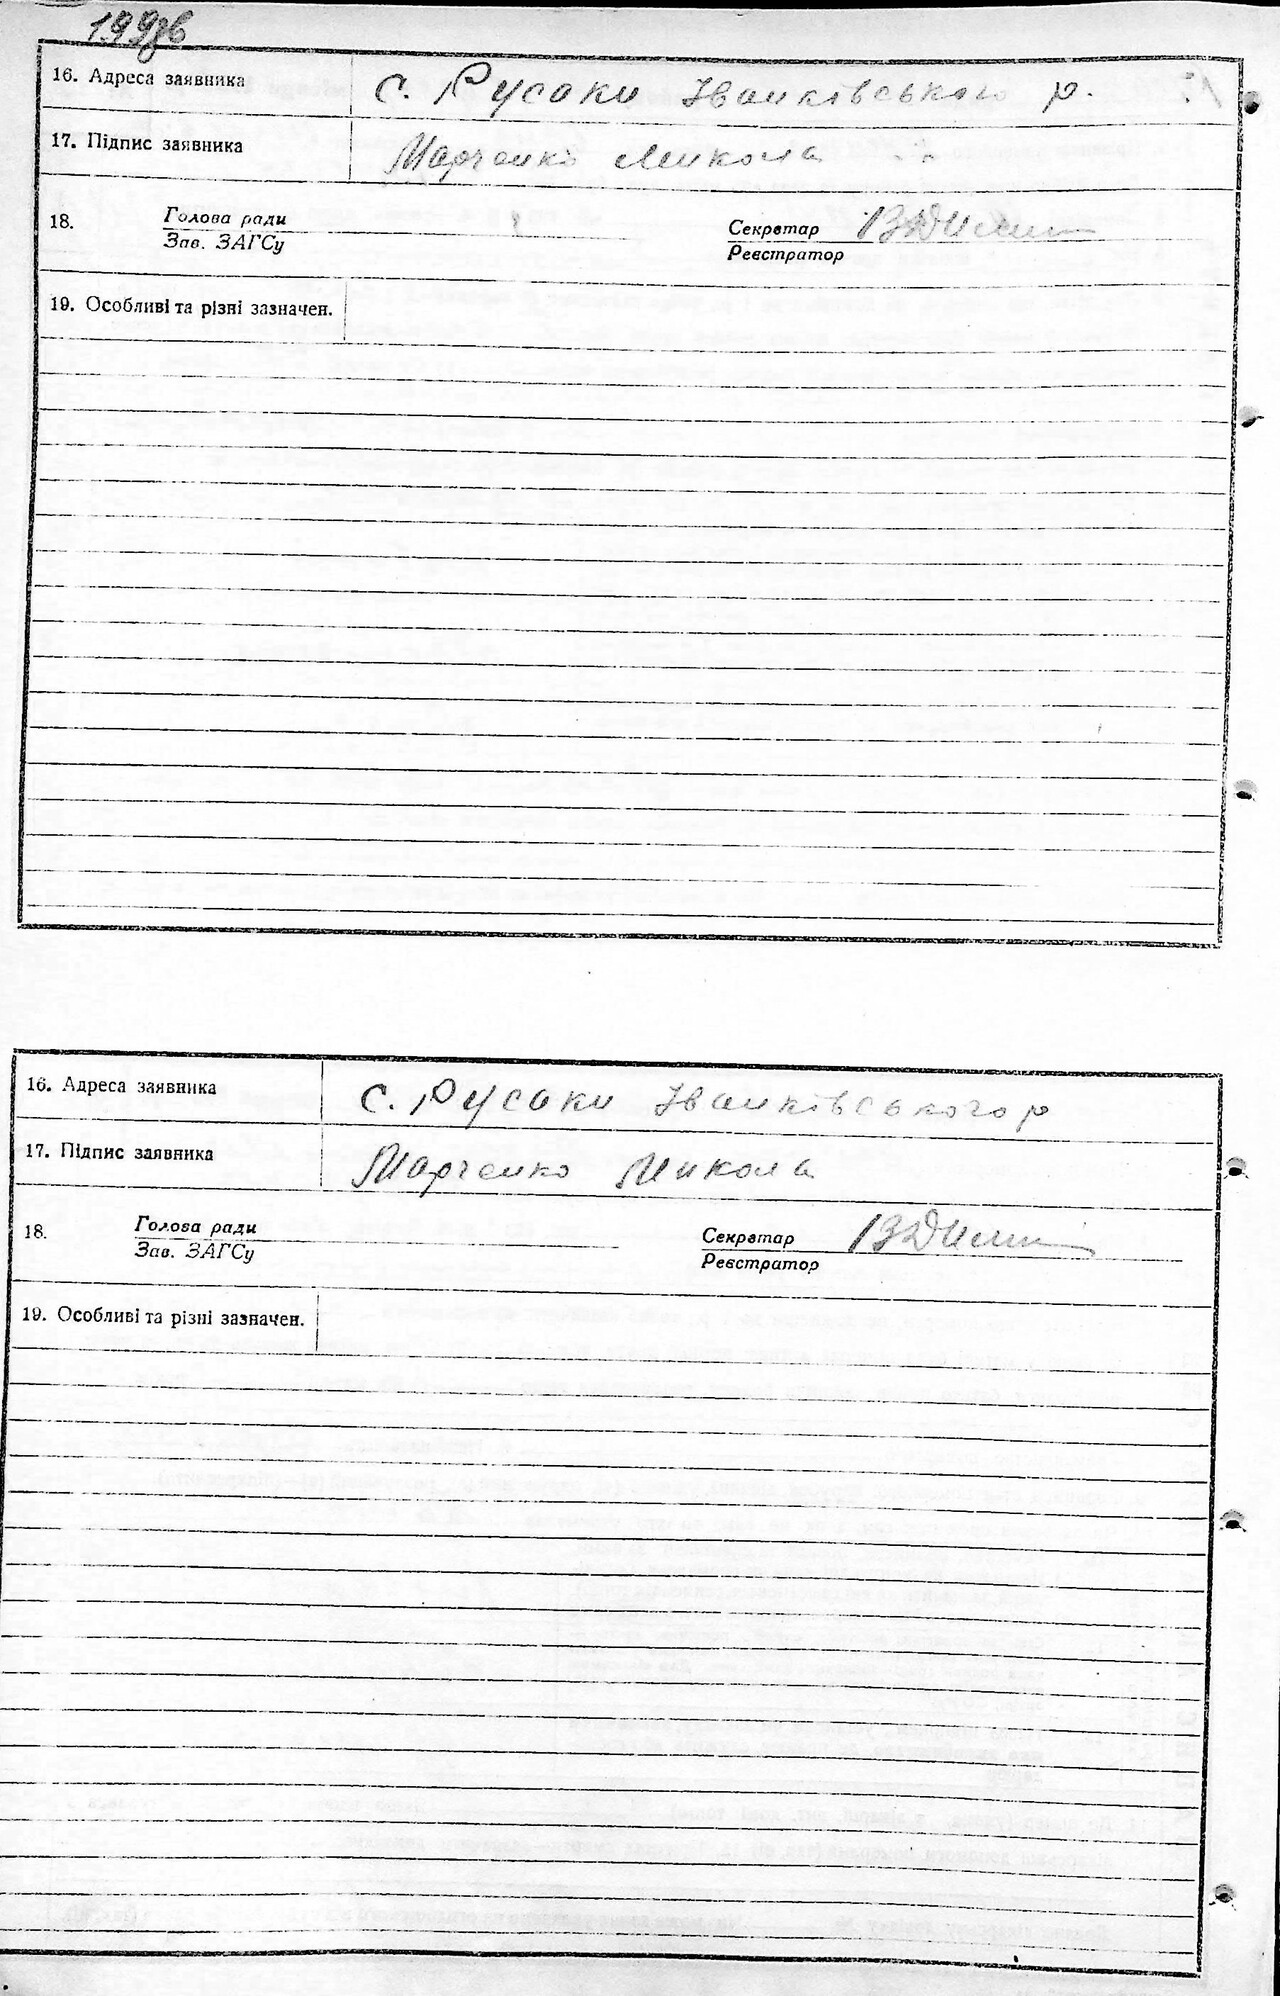 199зв
16. Адреса заявника с. Русаки Іванківського р.
17. Підпис заявника Марченко Микола
18. Голова ради Секретар
Зав. ЗАГСу Реєстратор
19. Особливі та різні зазначен.
16. Адреса заявника с. Русаки Іванківського р
17. Підпис заявника Марченко Микола
18. Голова ради Секретар
Зав. ЗАГСу Реєстратор
19. Особливі та різні зазначен.